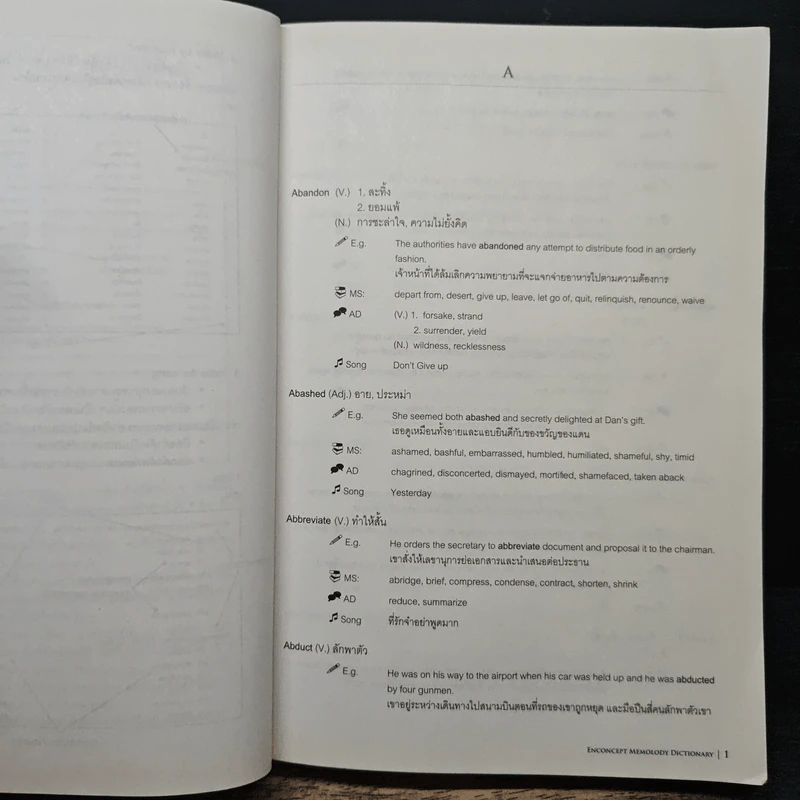 A
Abandon (V.) 1. ละทิ้ง
2. ยอมแพ้
(N.) การชะล่าใจ, ความไม่ยั้งคิด
E.g. The authorities have abandoned any attempt to distribute food in an orderly
fashion.
เจ้าหน้าที่ได้ล้มเลิกความพยายามที่จะแจกจ่ายอาหารไปตามความต้องการ
MS: depart from, desert, give up, leave, let go of, quit, relinquish, renounce, waive
AD (V.) 1. forsake, strand
2. surrender, yield
(N.) wildness, recklessness
Song Don't Give up
Abashed (Adj.) อาย, ประหม่า
E.g. She seemed both abashed and secretly delighted at Dan's gift.
เธอดูเหมือนทั้งอายและแอบยินดีกับของขวัญของแดน
MS: ashamed, bashful, embarrassed, humbled, humiliated, shameful, shy, timid
AD chagrined, disconcerted, dismayed, mortified, shamefaced, taken aback
Song Yesterday
Abbreviate (V.) ทำให้สั้น
E.g. He orders the secretary to abbreviate document and proposal it to the chairman.
เขาสั่งให้เลขานุการย่อเอกสารและนำเสนอต่อประธาน
MS: abridge, brief, compress, condense, contract, shorten, shrink
AD reduce, summarize
Song ที่รักจ๋าอย่าพูดมาก
Abduct (V.) ลักพาตัว
E.g. He was on his way to the airport when his car was held up and he was abducted
by four gunmen.
เขาอยู่ระหว่างเดินทางไปสนามบินตอนที่รถของเขาถูกหยุด และมือปืนสี่คนลักพาตัวเขา
ENCONCEPT MEMOLODY DICTIONARY | 1